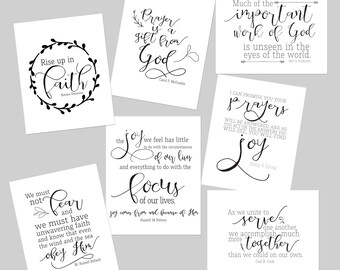 Rise up in
Faith
Prayer
is a
gift from
God
Much of the
important
work of God
is unseen in
the eyes of the
world.
the joy we feel has little
to do with the circumstances
of our lives
and everything to do with the
focus
of our lives.
joy comes from and because of Him
Russell M. Nelson
I CAN PROMISE YOU YOUR
prayers
WILL BE
WILL FIND
joy
We must
not fear
and
we must have
unwavering faith
and know that even
the wind and the sea
obey Him
W. Russell Nelson
As we unite to
serve one another,
we accomplish much
more together
than we could on our own.
Carl B. Cook